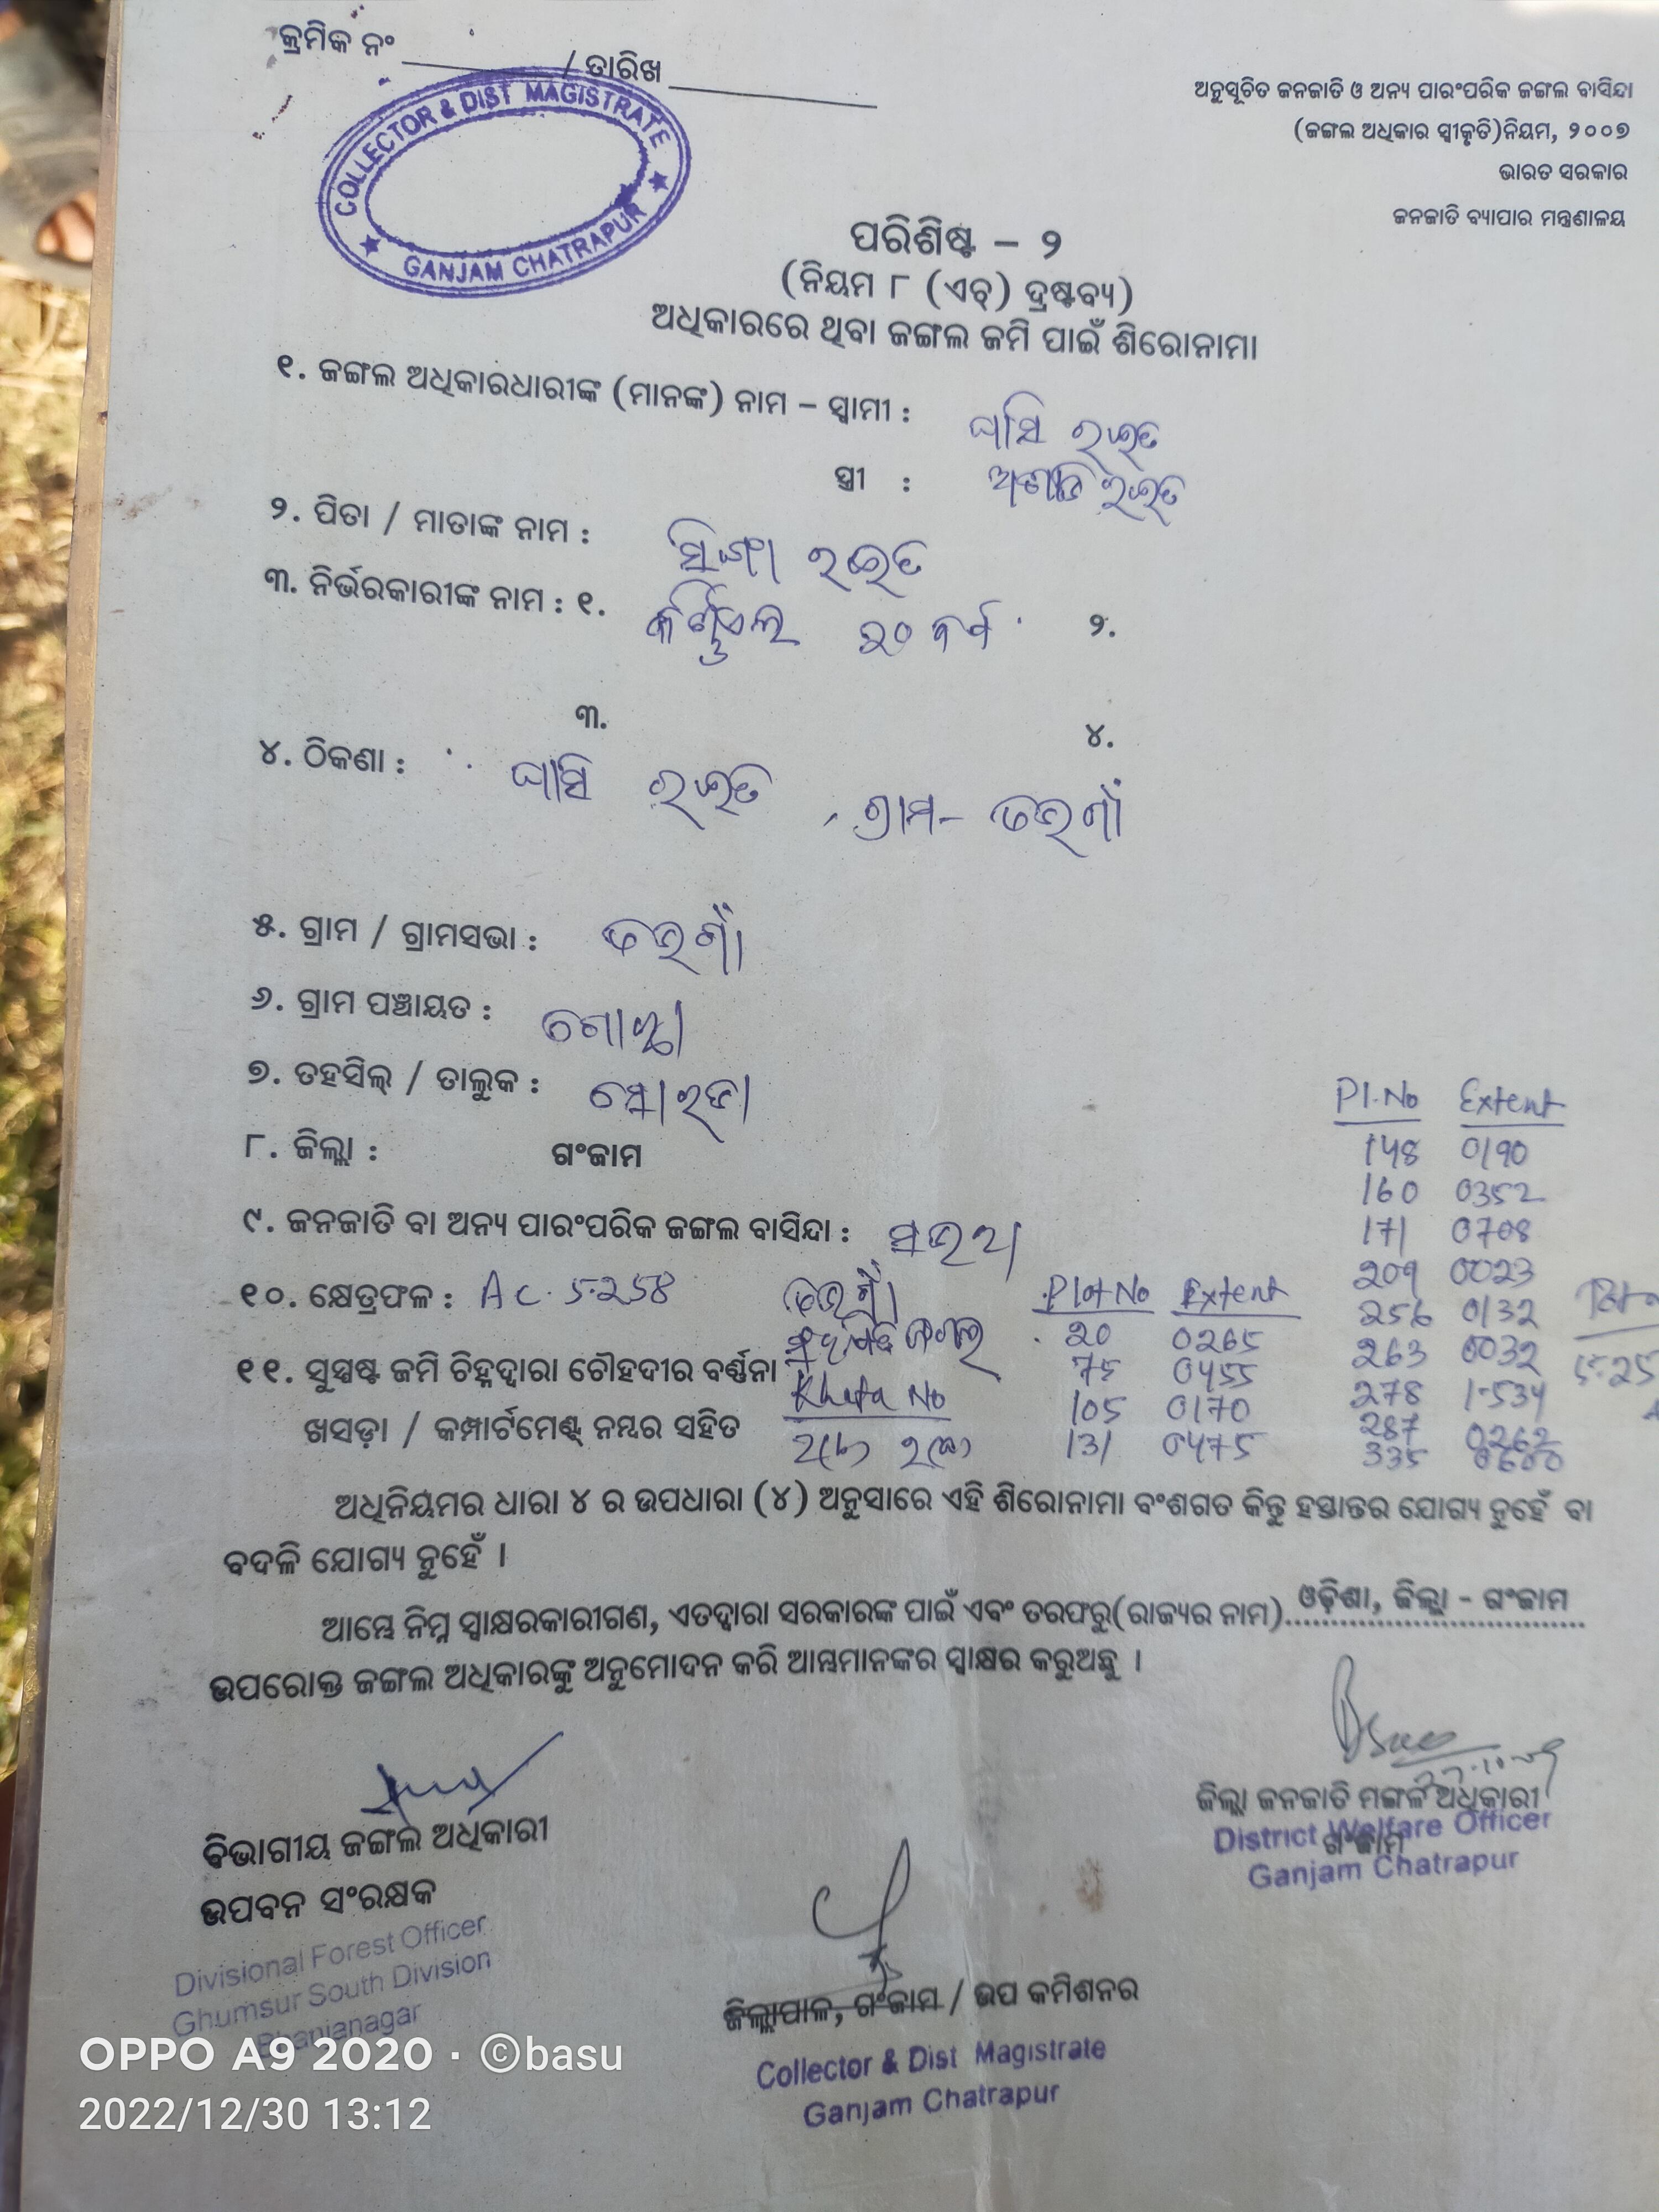 କ୍ରମିକ ନଂ / ତାରିଖ
ଅନୁସୂଚିତ ଜନଜାତି ଓ ଅନ୍ୟ ପାରଂପରିକ ଜଙ୍ଗଲ ବାସିନ୍ଦା
(ଜଙ୍ଗଲ ଅଧିକାର ସ୍ୱୀକୃତି)ନିୟମ, ୨୦୦୭
ଭାରତ ସରକାର
ଜନଜାତି ବ୍ୟାପାର ମନ୍ତ୍ରଣାଳୟ
COLLECTOR & DIST MAGISTRATE
★ GANJAM CHATRAPUR ★
ପରିଶିଷ୍ଟ – ୨
(ନିୟମ ୮ (ଏଚ୍) ଦ୍ରଷ୍ଟବ୍ୟ)
ଅଧିକାରରେ ଥିବା ଜଙ୍ଗଲ ଜମି ପାଇଁ ଶିରୋନାମା
୧. ଜଙ୍ଗଲ ଅଧିକାରଧାରୀଙ୍କ (ମାନଙ୍କ) ନାମ – ସ୍ୱାମୀ : ଘାସି ରଇତ
ସ୍ତ୍ରୀ : ରଇତ
୨. ପିତା / ମାତାଙ୍କ ନାମ : ରଇତ
୩. ନିର୍ଭରକାରୀଙ୍କ ନାମ : ୧. ୨୦ ବର୍ଷ ୨.
୩. ୪.
୪. ଠିକଣା : ଘାସି ରଇତ , ଗ୍ରାମ-
୫. ଗ୍ରାମ / ଗ୍ରାମସଭା :
୬. ଗ୍ରାମ ପଞ୍ଚାୟତ :
୭. ତହସିଲ୍ / ତାଲୁକ : ସୋରଡା
୮. ଜିଲ୍ଲା : ଗଂଜାମ
Pl.No Extent
148 0190
160 0352
171 0708
209 0023
256 0132
263 0032
278 1-534
287 0262
335
୯. ଜନଜାତି ବା ଅନ୍ୟ ପାରଂପରିକ ଜଙ୍ଗଲ ବାସିନ୍ଦା : ସଉରା
୧୦. କ୍ଷେତ୍ରଫଳ : Ac. 5.258
Plot No Extent
20 0265
75 0455
105 0170
131 0475
୧୧. ସୁସ୍ପଷ୍ଟ ଜମି ଚିହ୍ନଦ୍ୱାରା ଚୌହଦୀର ବର୍ଣ୍ଣନା
Khata No
ଖସଡ଼ା / କମ୍ପାର୍ଟମେଣ୍ଟ୍ ନମ୍ବର ସହିତ
ଅଧିନିୟମର ଧାରା ୪ ର ଉପଧାରା (୪) ଅନୁସାରେ ଏହି ଶିରୋନାମା ବଂଶଗତ କିନ୍ତୁ ହସ୍ତାନ୍ତର ଯୋଗ୍ୟ ନୁହେଁ ବା
ବଦଳି ଯୋଗ୍ୟ ନୁହେଁ ।
ଆମ୍ଭେ ନିମ୍ନ ସ୍ୱାକ୍ଷରକାରୀଗଣ, ଏତଦ୍ୱାରା ସରକାରଙ୍କ ପାଇଁ ଏବଂ ତରଫରୁ(ରାଜ୍ୟର ନାମ)ଓଡ଼ିଶା, ଜିଲ୍ଲା - ଗଂଜାମ
ଉପରୋକ୍ତ ଜଙ୍ଗଲ ଅଧିକାରଙ୍କୁ ଅନୁମୋଦନ କରି ଆମ୍ଭମାନଙ୍କର ସ୍ୱାକ୍ଷର କରୁଅଛୁ ।
ଜିଲ୍ଲା ଜନଜାତି ମଙ୍ଗଳ ଅଧିକାରୀ
ଗଂଜାମ
District Welfare Officer
Ganjam Chatrapur
ବିଭାଗୀୟ ଜଙ୍ଗଲ ଅଧିକାରୀ
ଉପବନ ସଂରକ୍ଷକ
Divisional Forest Officer
Ghumsur South Division
Bhanjanagar
ଜିଲ୍ଲାପାଳ, ଗଂଜାମ / ଉପ କମିଶନର
Collector & Dist Magistrate
Ganjam Chatrapur
OPPO A9 2020 · ©basu
2022/12/30 13:12